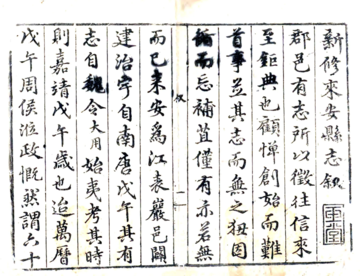 新修來安縣志敘
郡邑有志所以徵往信來
至鉅典也顧憚創始而難
首事並其志而無之狃因
循而忘補苴僅有亦若無
而已來安為江表巖邑闢
建治宇自南唐戊午其有
志自魏令大用始夷考其時
則嘉靖戊午歲也迨萬曆
戊午周侯涖政慨然謂六十